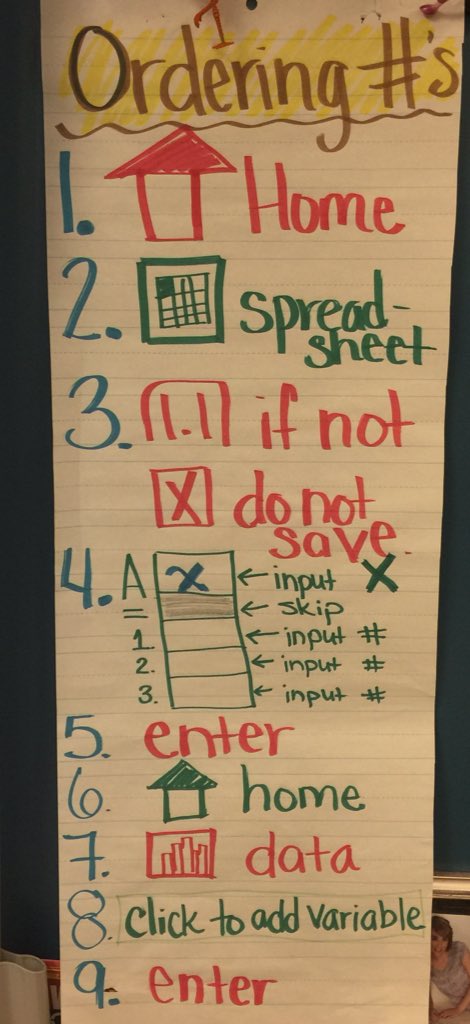 Ordering #'s
1. Home
2. spread-
sheet
3. 1.1 if not
X do not
save.
4. A x ← input X
= ← skip
1. ← input #
2. ← input #
3. ← input #
5. enter
6. home
7. data
8. click to add variable
9. enter